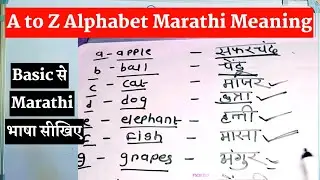 A to Z Alphabet Marathi Meaning
Basic से
Marathi
भाषा सीखिए
a - apple - सफरचंद
b - ball - चेंडू
c - cat - मांजर
d - dog - कुत्रा
e - elephant - हत्ती
f - fish - मासा
g - grapes -